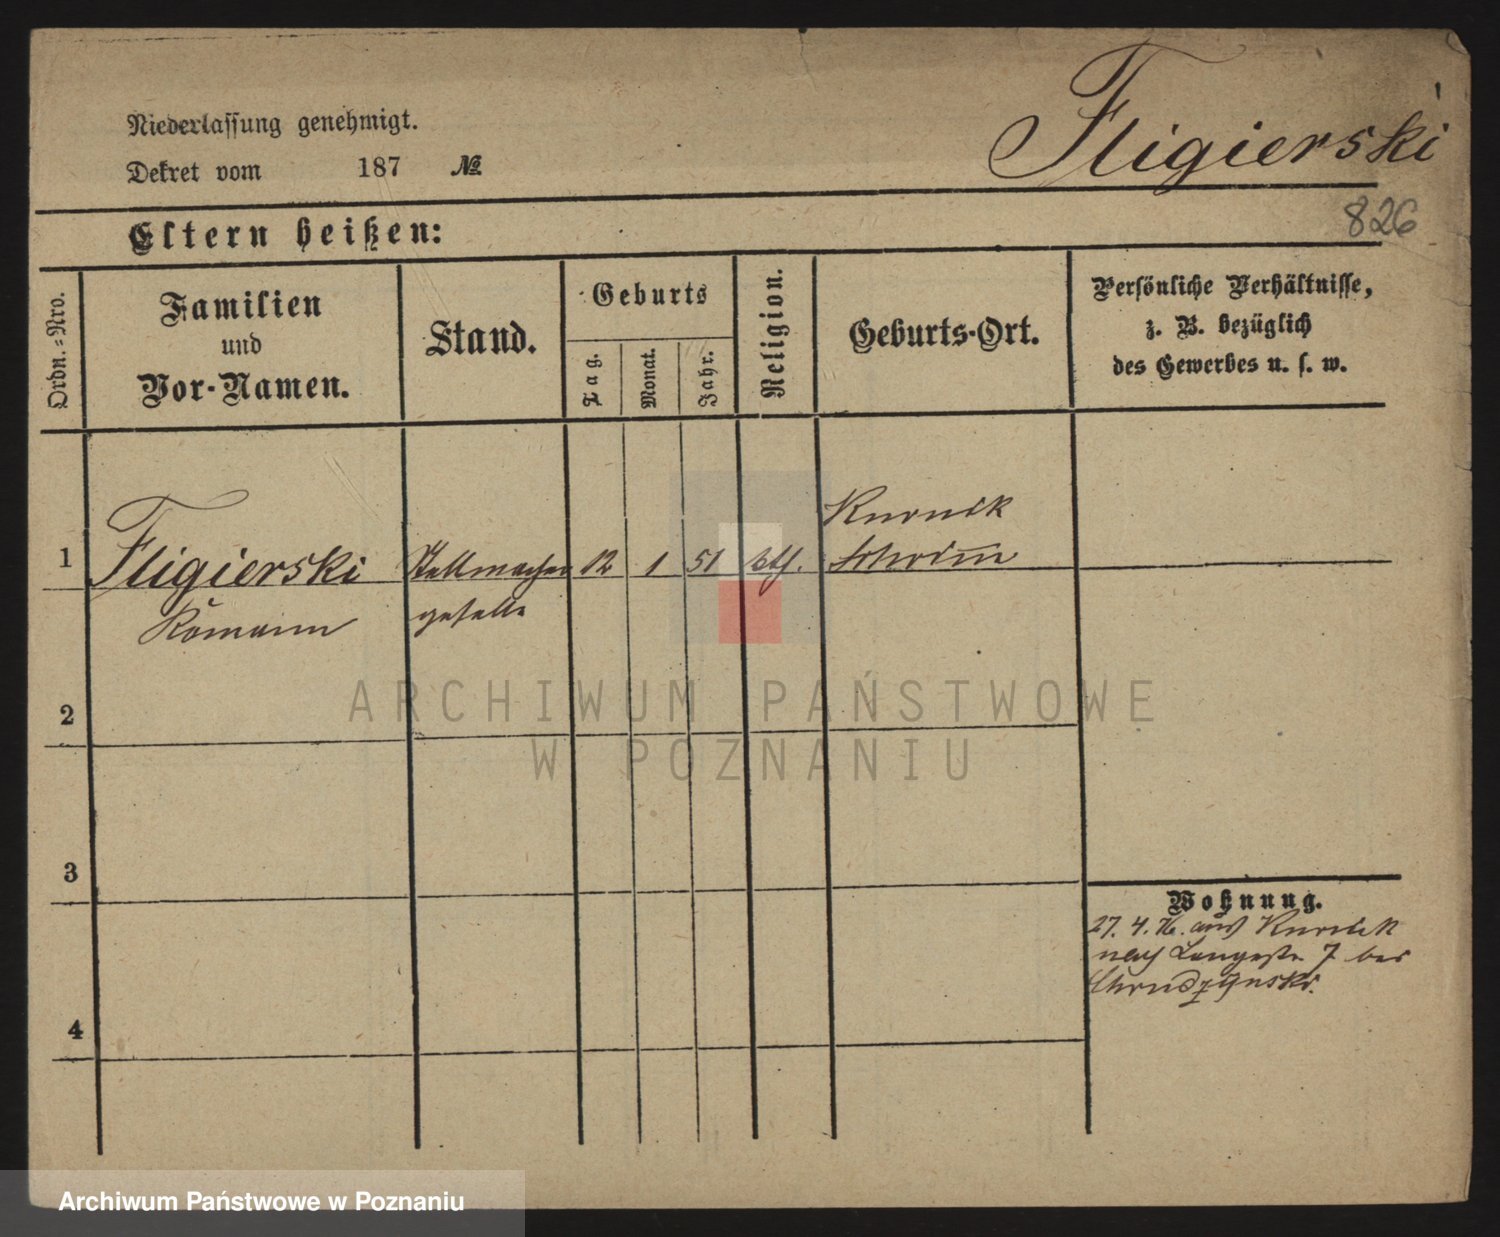 Niederlassung genehmigt.
Dekret vom 187 №
Fligierski
826
Eltern heißen:
Ordn.-Nro.
Familien
und
Vor-Namen.
Stand.
Geburts
Tag.
Monat.
Jahr.
Religion.
Geburts-Ort.
Persönliche Verhältnisse,
z. B. bezüglich
des Gewerbes u. s. w.
1
Fligierski
Roman
Stellmacher
geselle
12
1
51
kth.
Kurnik
Schrimm
2
3
4
Wohnung.
27. 4. 76. aus Kurnik
nach Langestr 7 bei
Chrudzynski.
ARCHIWUM PAŃSTWOWE
W POZNANIU
Archiwum Państwowe w Poznaniu